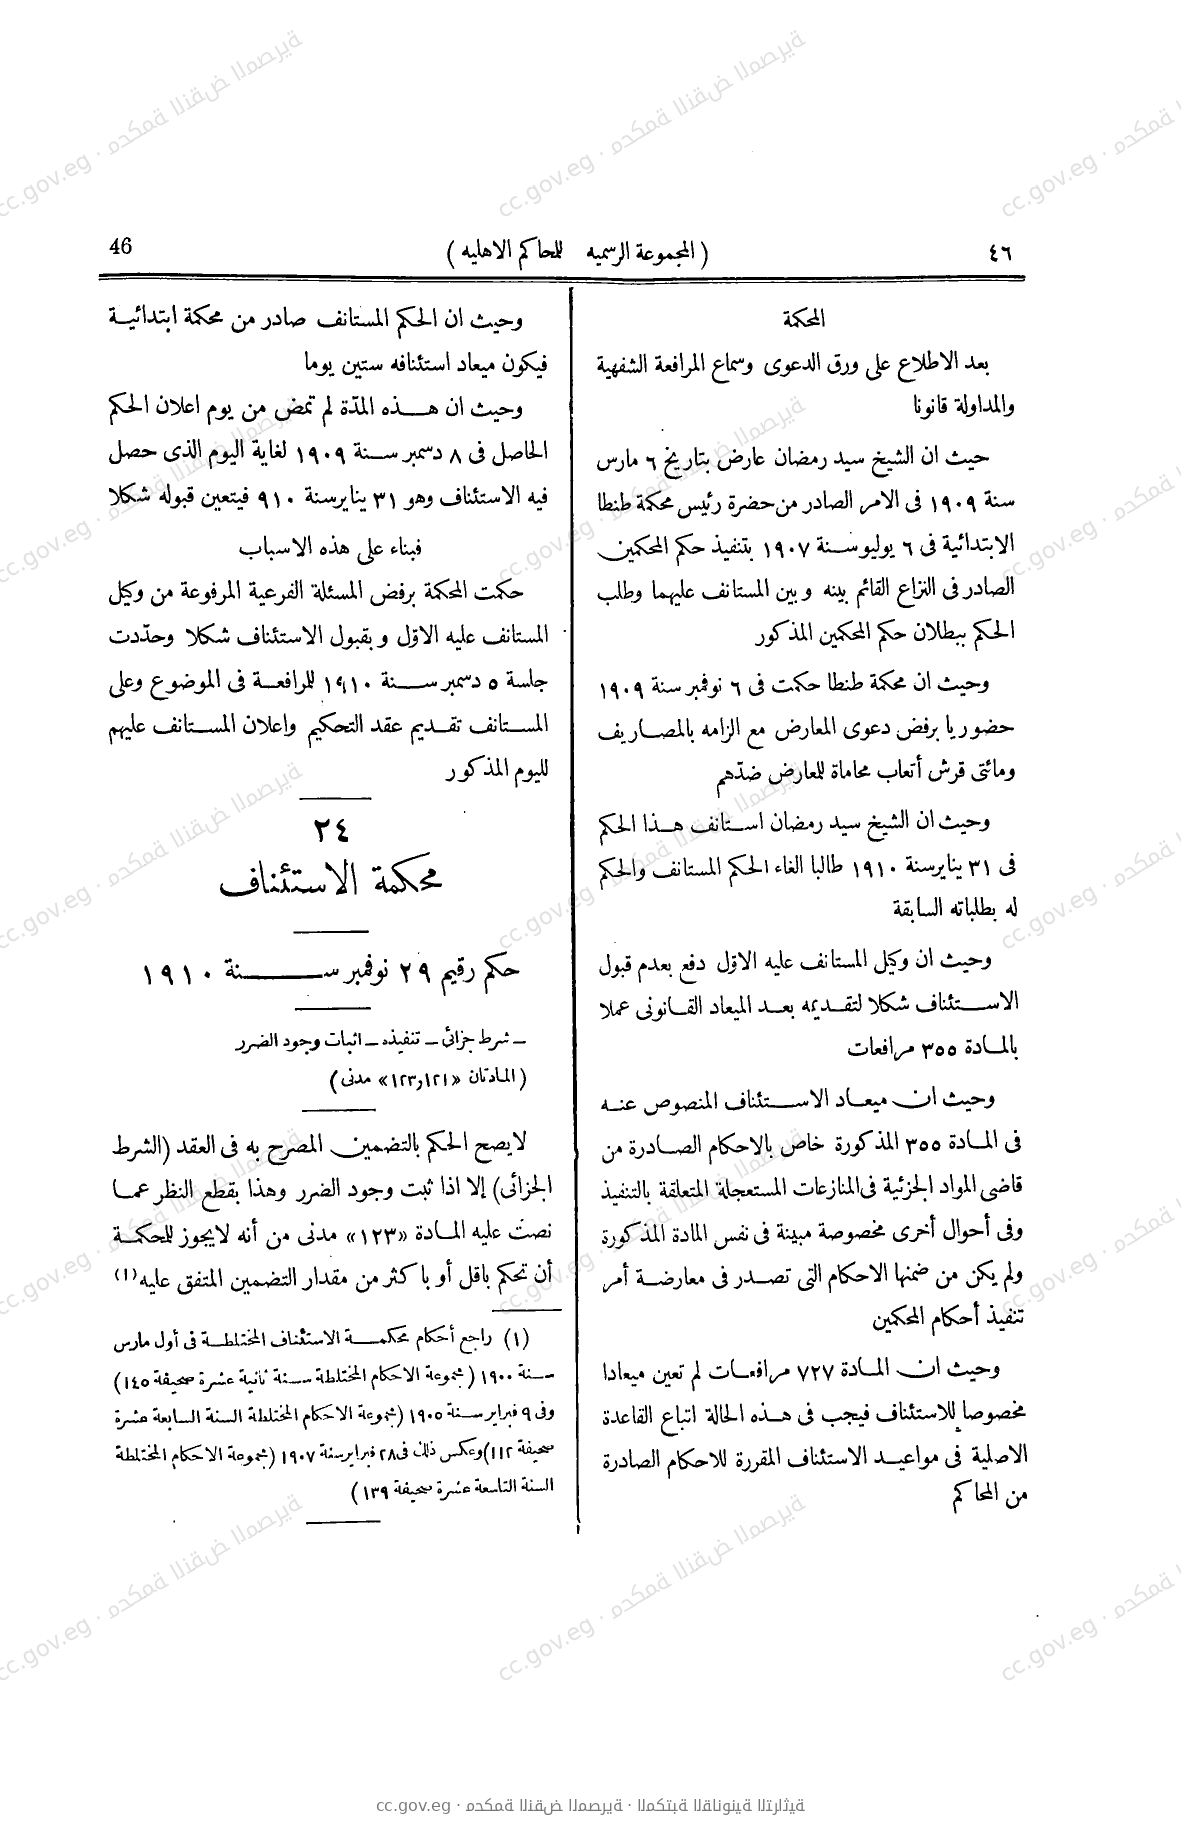 ٤٦
( المجموعة الرسميه للحاكم الاهليه )
46
المحكمة
بعد الاطلاع على ورق الدعوى وسماع المرافعة الشفهية
والمداولة قانونا
حيث ان الشيخ سيد رمضان عارض بتاريخ ٦ مارس
سنة ١٩٠٩ فى الامر الصادر من حضرة رئيس محكمة طنطا
الابتدائية فى ٦ يوليو سنة ١٩٠٧ بتنفيذ حكم المحكمين
الصادر فى النزاع القائم بينه وبين المستانف عليهما وطلب
الحكم ببطلان حكم المحكمين المذكور
وحيث ان محكمة طنطا حكمت فى ٦ نوفمبر سنة ١٩٠٩
حضوريا برفض دعوى المعارض مع الزامه بالمصاريف
ومائتى قرش أتعاب محاماة للعارض ضدّهم
وحيث ان الشيخ سيد رمضان استانف هذا الحكم
فى ٣١ يناير سنة ١٩١٠ طالبا الغاء الحكم المستانف والحكم
له بطلباته السابقة
وحيث ان وكيل المستانف عليه الاوّل دفع بعدم قبول
الاستئناف شكلا لتقديمه بعد الميعاد القانونى عملا
بالمادة ٣٥٥ مرافعات
وحيث ان ميعاد الاستئناف المنصوص عنه
فى المادة ٣٥٥ المذكورة خاص بالاحكام الصادرة من
قاضى المواد الجزئية فى المنازعات المستعجلة المتعلقة بالتنفيذ
وفى أحوال أخرى مخصوصة مبينة فى نفس المادة المذكورة
ولم يكن من ضمنها الاحكام التى تصدر فى معارضة أمر
تنفيذ أحكام المحكمين
وحيث ان المادة ٧٢٧ مرافعات لم تعين ميعادا
مخصوصا للاستئناف فيجب فى هذه الحالة اتباع القاعدة
الاصلية فى مواعيد الاستئناف المقررة للاحكام الصادرة
من المحاكم
وحيث ان الحكم المستانف صادر من محكمة ابتدائية
فيكون ميعاد استئنافه ستين يوما
وحيث ان هذه المدّة لم تمض من يوم اعلان الحكم
الحاصل فى ٨ دسمبر سنة ١٩٠٩ لغاية اليوم الذى حصل
فيه الاستئناف وهو ٣١ يناير سنة ٩١٠ فيتعين قبوله شكلا
فبناء على هذه الاسباب
حكمت المحكمة برفض المسئلة الفرعية المرفوعة من وكيل
المستانف عليه الاوّل وبقبول الاستئناف شكلا وحدّدت
جلسة ٥ دسمبر سنة ١٩١٠ للرافعة فى الموضوع وعلى
المستانف تقديم عقد التحكيم واعلان المستانف عليهم
لليوم المذكور
٢٤
محكمة الاستئناف
حكم رقيم ٢٩ نوفمبر سنة ١٩١٠
– شرط جزائى – تنفيذه – اثبات وجود الضرر
( المادتان «١٢١و١٢٣» مدنى )
لا يصح الحكم بالتضمين المصرح به فى العقد (الشرط
الجزائى) إلا اذا ثبت وجود الضرر وهذا بقطع النظر عما
نصت عليه المادة «١٢٣» مدنى من أنه لا يجوز للحكمة
أن تحكم باقل أو باكثر من مقدار التضمين المتفق عليه (١)
(١) راجع أحكام محكمة الاستئناف المختلطة فى أول مارس
سنة ١٩٠٠ ( مجموعة الاحكام المختلطة سنة ثانية عشرة صحيفة ١٤٥ )
وفى ٩ فبراير سنة ١٩٠٥ (مجموعة الاحكام المختلطة السنة السابعة عشرة
صحيفة ١١٢) وعكس ذلك فى ٢٨ فبراير سنة ١٩٠٧ (مجموعة الاحكام المختلطة
السنة التاسعة عشرة صحيفة ١٣٩ )
cc.gov.eg · محكمة النقض المصرية · المكتبة القانونية التراثية